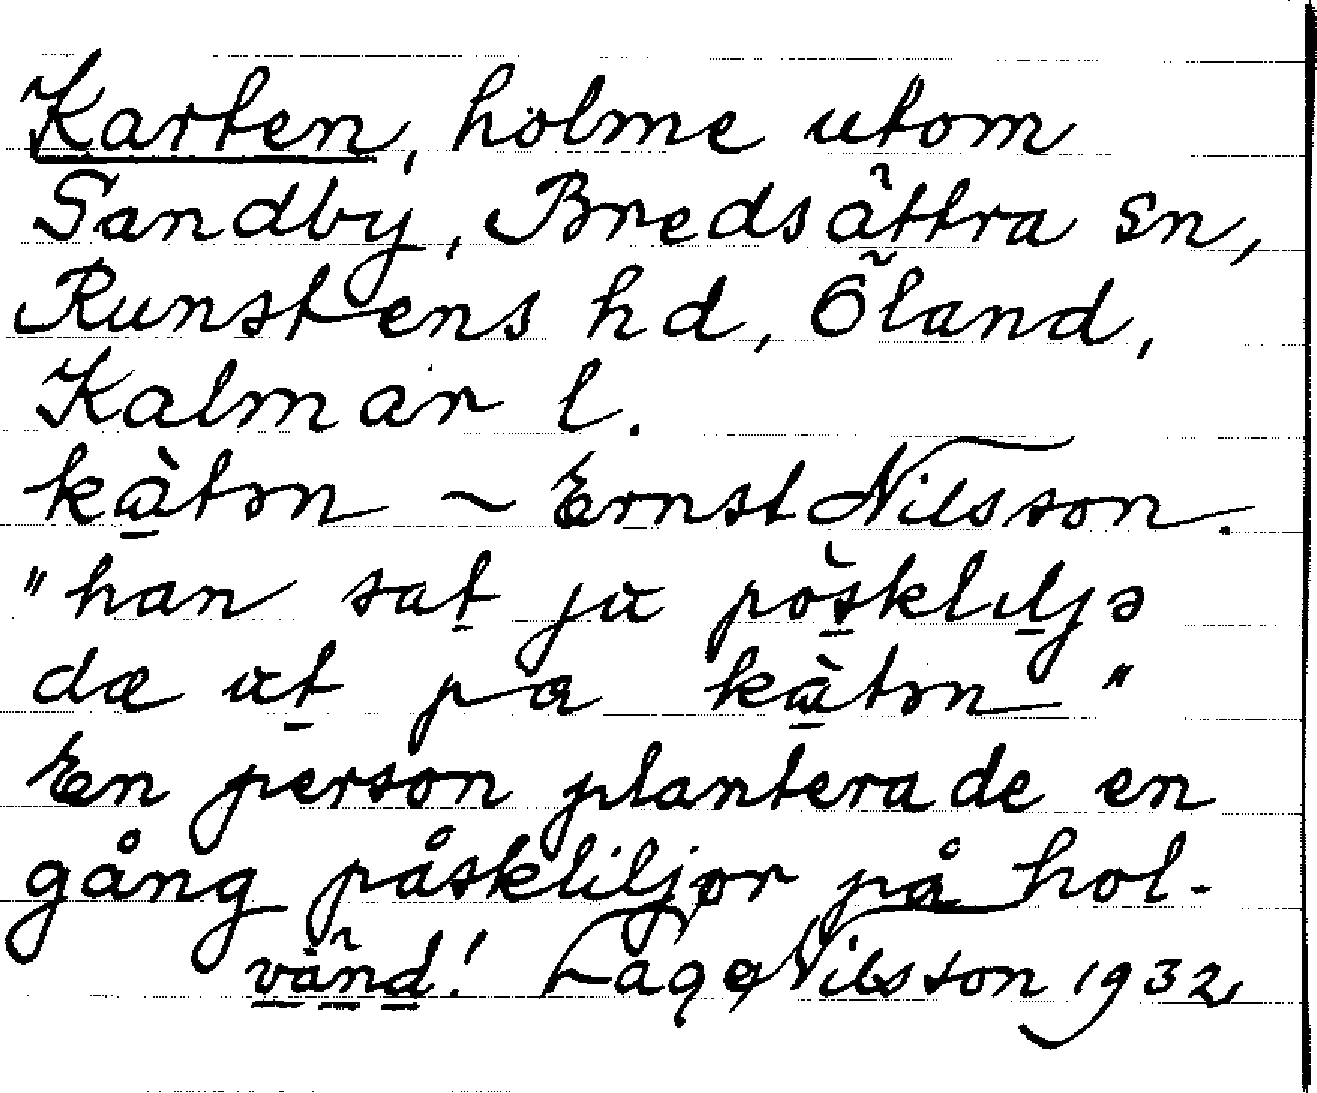 Karten, holme utom
Sandby, Bredsättra sn,
Runstens hd, Öland,
Kalmar l.
kàtɔn ~ Ernst Nilsson.
"han sat ju pòsklɩljə
dæ ut pa kàtɔn"
En person planterade en
gång påskliljor på hol-
vänd! Lage Nilsson 1932